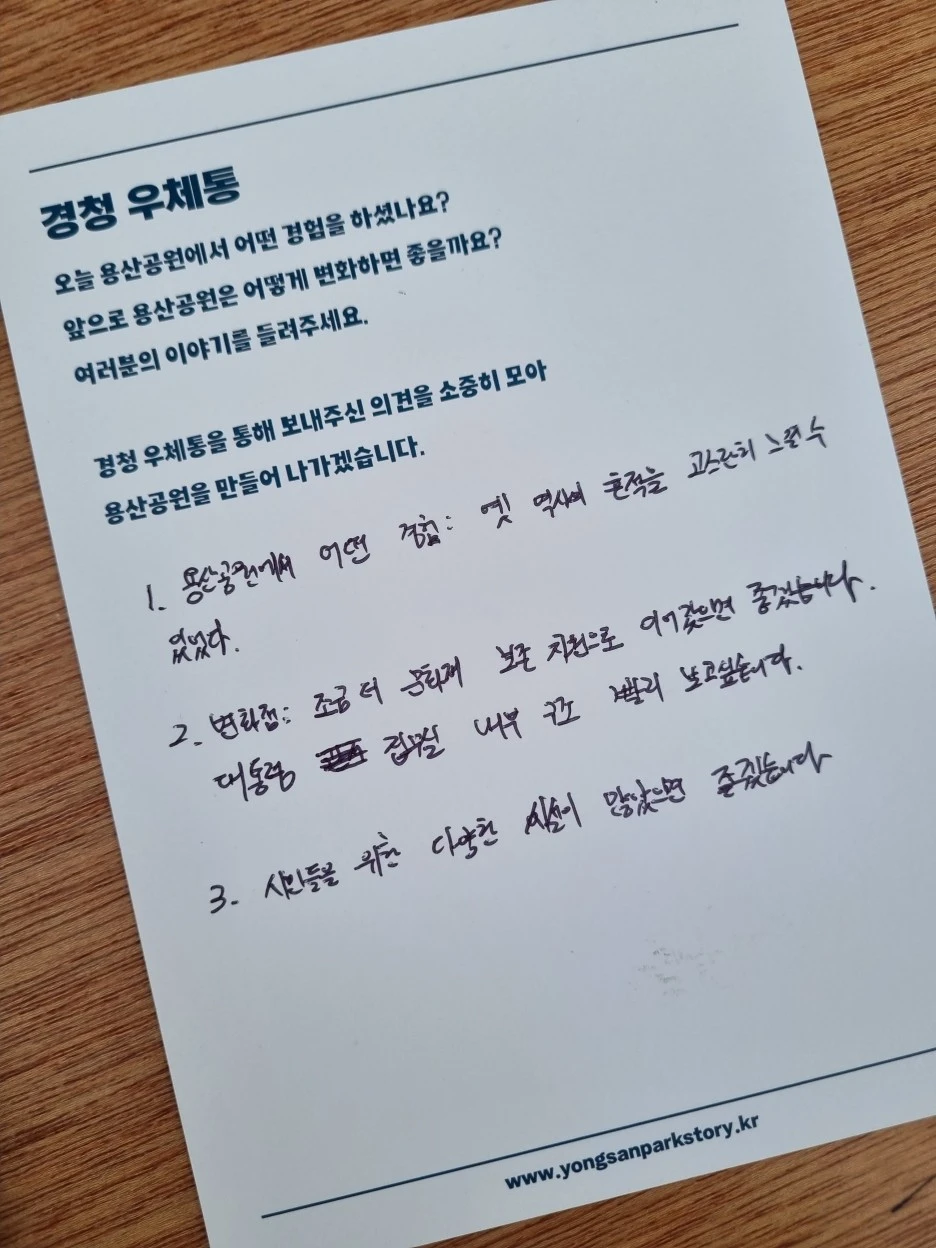 경청 우체통
오늘 용산공원에서 어떤 경험을 하셨나요?
앞으로 용산공원은 어떻게 변화하면 좋을까요?
여러분의 이야기를 들려주세요.
경청 우체통을 통해 보내주신 의견을 소중히 모아
용산공원을 만들어 나가겠습니다.
1. 용산공원에서 어떤 경험: 옛 역사의 흔적을 고스란히 느낄 수
있었다.
2. 변화점: 조금 더 문화재 보존 차원으로 이어갔으면 좋겠습니다.
대통령 집무실 내부 구조 빨리 보고싶습니다.
3. 시민들을 위한 다양한 시설이 많았으면 좋겠습니다
www.yongsanparkstory.kr